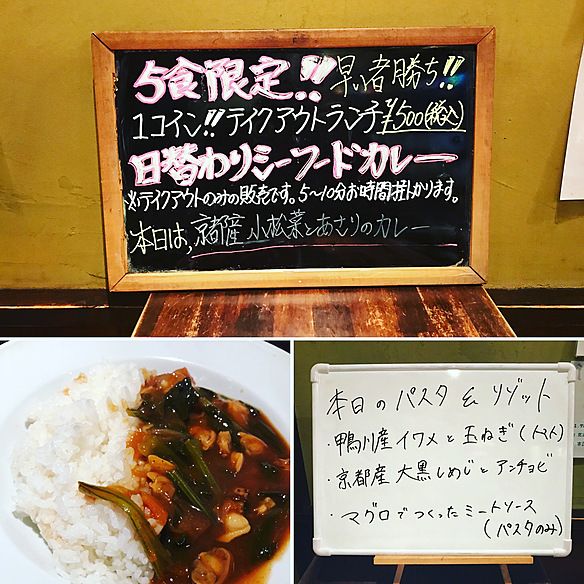 5食限定!! 早い者勝ち!!
1コイン!! テイクアウトランチ ¥500(税込)
日替わりシーフードカレー
※テイクアウトのみの販売です。5〜10分お時間掛かります。
本日は、京都産 小松菜とあさりのカレー
本日のパスタ & リゾット
・鴨川産イワメと玉ねぎ(トマト)
・京都産 大黒しめじとアンチョビ
・マグロでつくったミートソース
(パスタのみ)